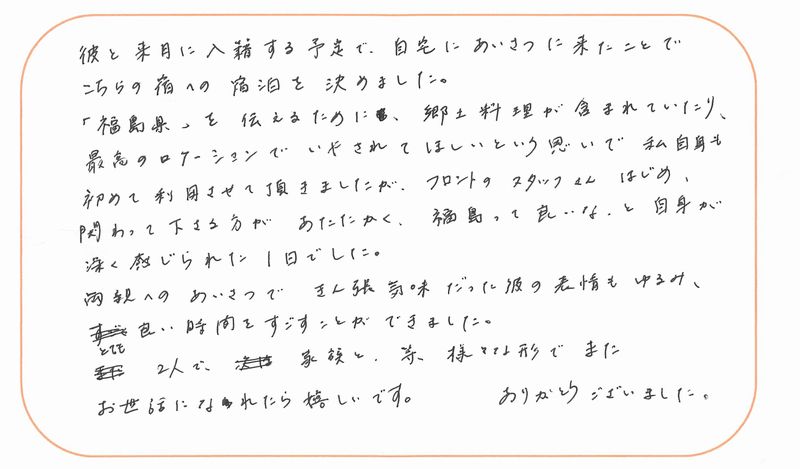 彼と来月に入籍する予定で、自宅にあいさつに来たことで
こちらの宿への宿泊を決めました。
「福島県」を伝えるために、郷土料理が含まれていたり、
最高のロケーションでいやされてほしいという思いで私自身も
初めて利用させて頂きましたが、フロントのスタッフさんはじめ、
関わって下さる方があたたかく、福島って良いな、と自身が
深く感じられた1日でした。
両親へのあいさつできん張気味だった彼の表情もゆるみ、
とても良い時間をすごすことができました。
2人で、家族と、等、様々な形でまた
お世話になれたら嬉しいです。 ありがとうございました。